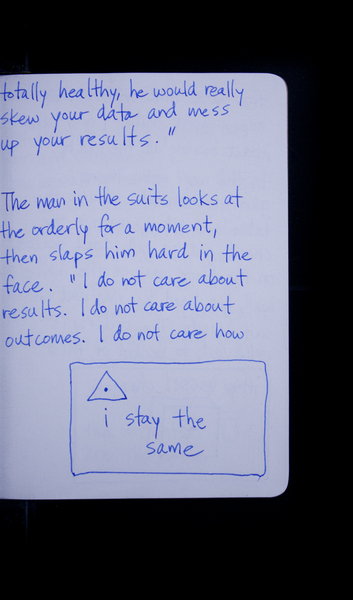 totally healthy, he would really
skew your data and mess
up your results."
The man in the suits looks at
the orderly for a moment,
then slaps him hard in the
face. "I do not care about
results. I do not care about
outcomes. I do not care how
i stay the
same